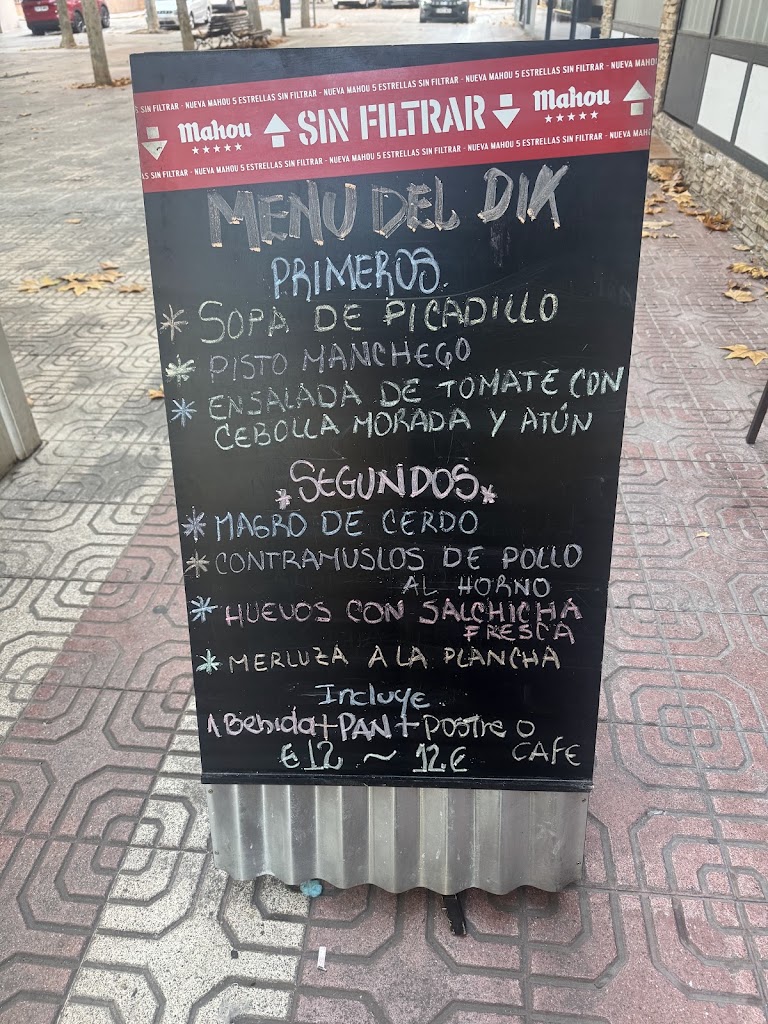 S SIN FILTRAR - NUEVA MAHOU 5 ESTRELLAS SIN FILTRAR - NUEVA MAHOU 5 ESTRELLAS SIN FILTRAR - NUEVA MAHOU 5 ESTRELLAS SIN FILTRAR - NUEVA MAHOU
Mahou SIN FILTRAR Mahou
AS SIN FILTRAR - NUEVA MAHOU 5 ESTRELLAS SIN FILTRAR - NUEVA MAHOU 5 ESTRELLAS SIN FILTRAR - NUEVA MAHOU 5 ESTRELLAS SIN FILTRAR - NUEVA MAHOU
MENU DEL DIA
PRIMEROS
* SOPA DE PICADILLO
* PISTO MANCHEGO
* ENSALADA DE TOMATE CON
CEBOLLA MORADA Y ATÚN
* SEGUNDOS *
* MAGRO DE CERDO
* CONTRAMUSLOS DE POLLO
AL HORNO
* HUEVOS CON SALCHICHA
FRESCA
* MERLUZA A LA PLANCHA
Incluye
1 Bebida + PAN + Postre o
CAFE
€ 12 ~ 12 €